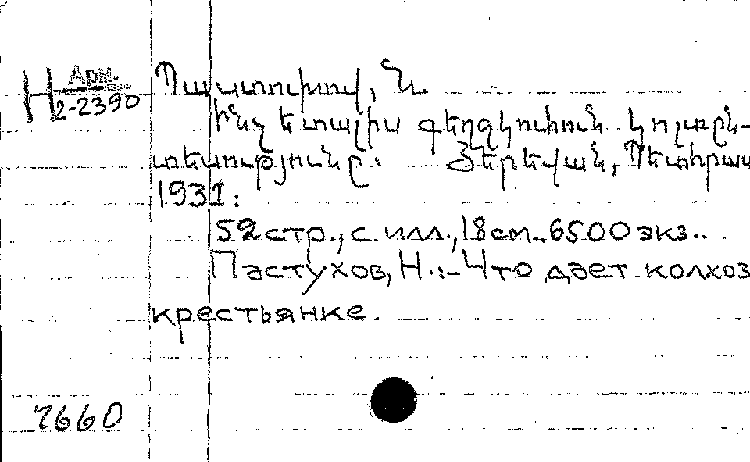 Арм.
Н 2-2390
Պաստուխով, Ն.
Ի՞նչ է տալիս գեղջկուհուն կոլտըն-
տեսությունը: Յերեվան, Պետհրատ
1931:
52 стр., с илл., 18 см.. 6500 экз..
Пастухов, Н.:-Что дает колхоз
крестьянке.
7660